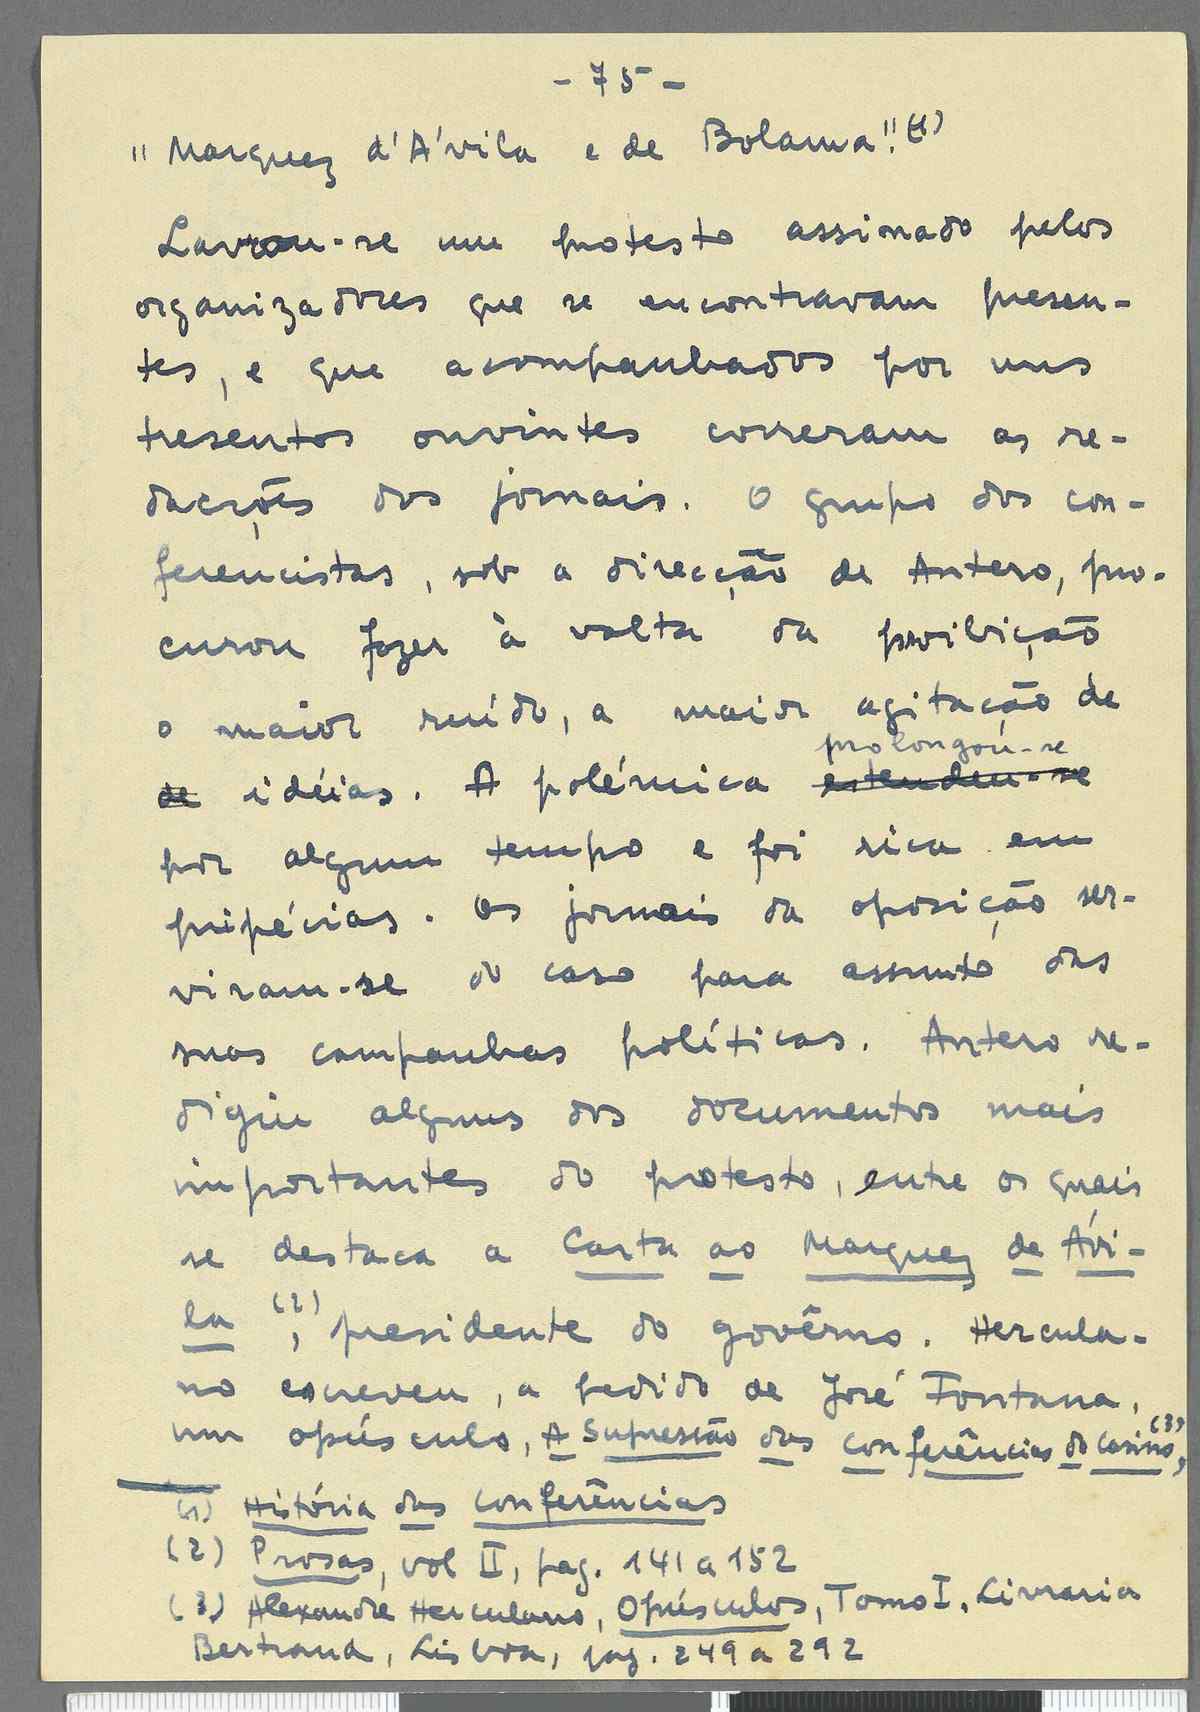 - 75 -
"Marquez d'Ávila e de Bolama".(1)
Lavrou-se um protesto assinado pelos
organizadores que se encontravam presen-
tes, e que acompanhados por uns
tresentos ouvintes correram as re-
dacções dos jornais. O grupo dos con-
ferencistas, sob a direcção de Antero, pro-
curou fazer à volta da proibição
o maior ruído, a maior agitação de
prolongou-se
de idéias. A polémica estendeu-se
por algum tempo e foi rica em
pripécias. Os jornais da oposição ser-
viram-se do caso para assunto das
suas campanhas políticas. Antero re-
digiu alguns dos documentos mais
importantes do protesto, entre os quais
se destaca a Carta ao Marquez de Ávi-
la (2), presidente do govêrno. Hercula-
no escreveu, a pedido de José Fontana,
um opúsculo, A Supressão das Conferências do Casino(3),
(1) História das Conferências
(2) Prosas, vol II, pag. 141 a 152
(3) Alexandre Herculano, Opúsculos, Tomo I, Livraria
Bertrand, Lisboa, pag. 249 a 292